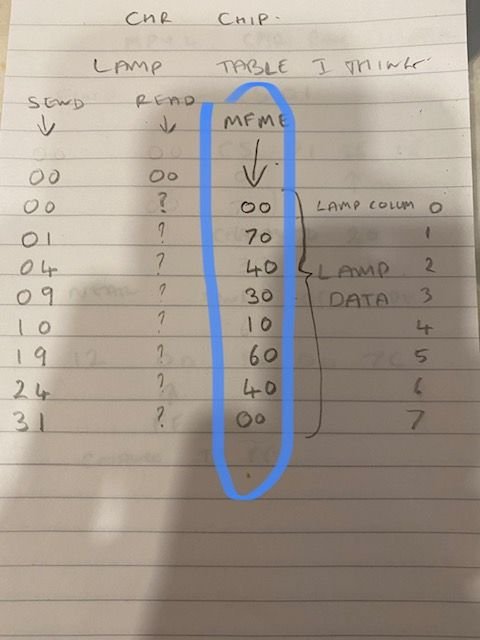 CHR CHIP.
LAMP TABLE I THINK.
SEND READ MFME
00 00
00 ? 00 LAMP COLUM 0
01 ? 70 1
04 ? 40 LAMP 2
09 ? 30 DATA 3
10 ? 10 4
19 ? 60 5
24 ? 40 6
31 ? 00 7